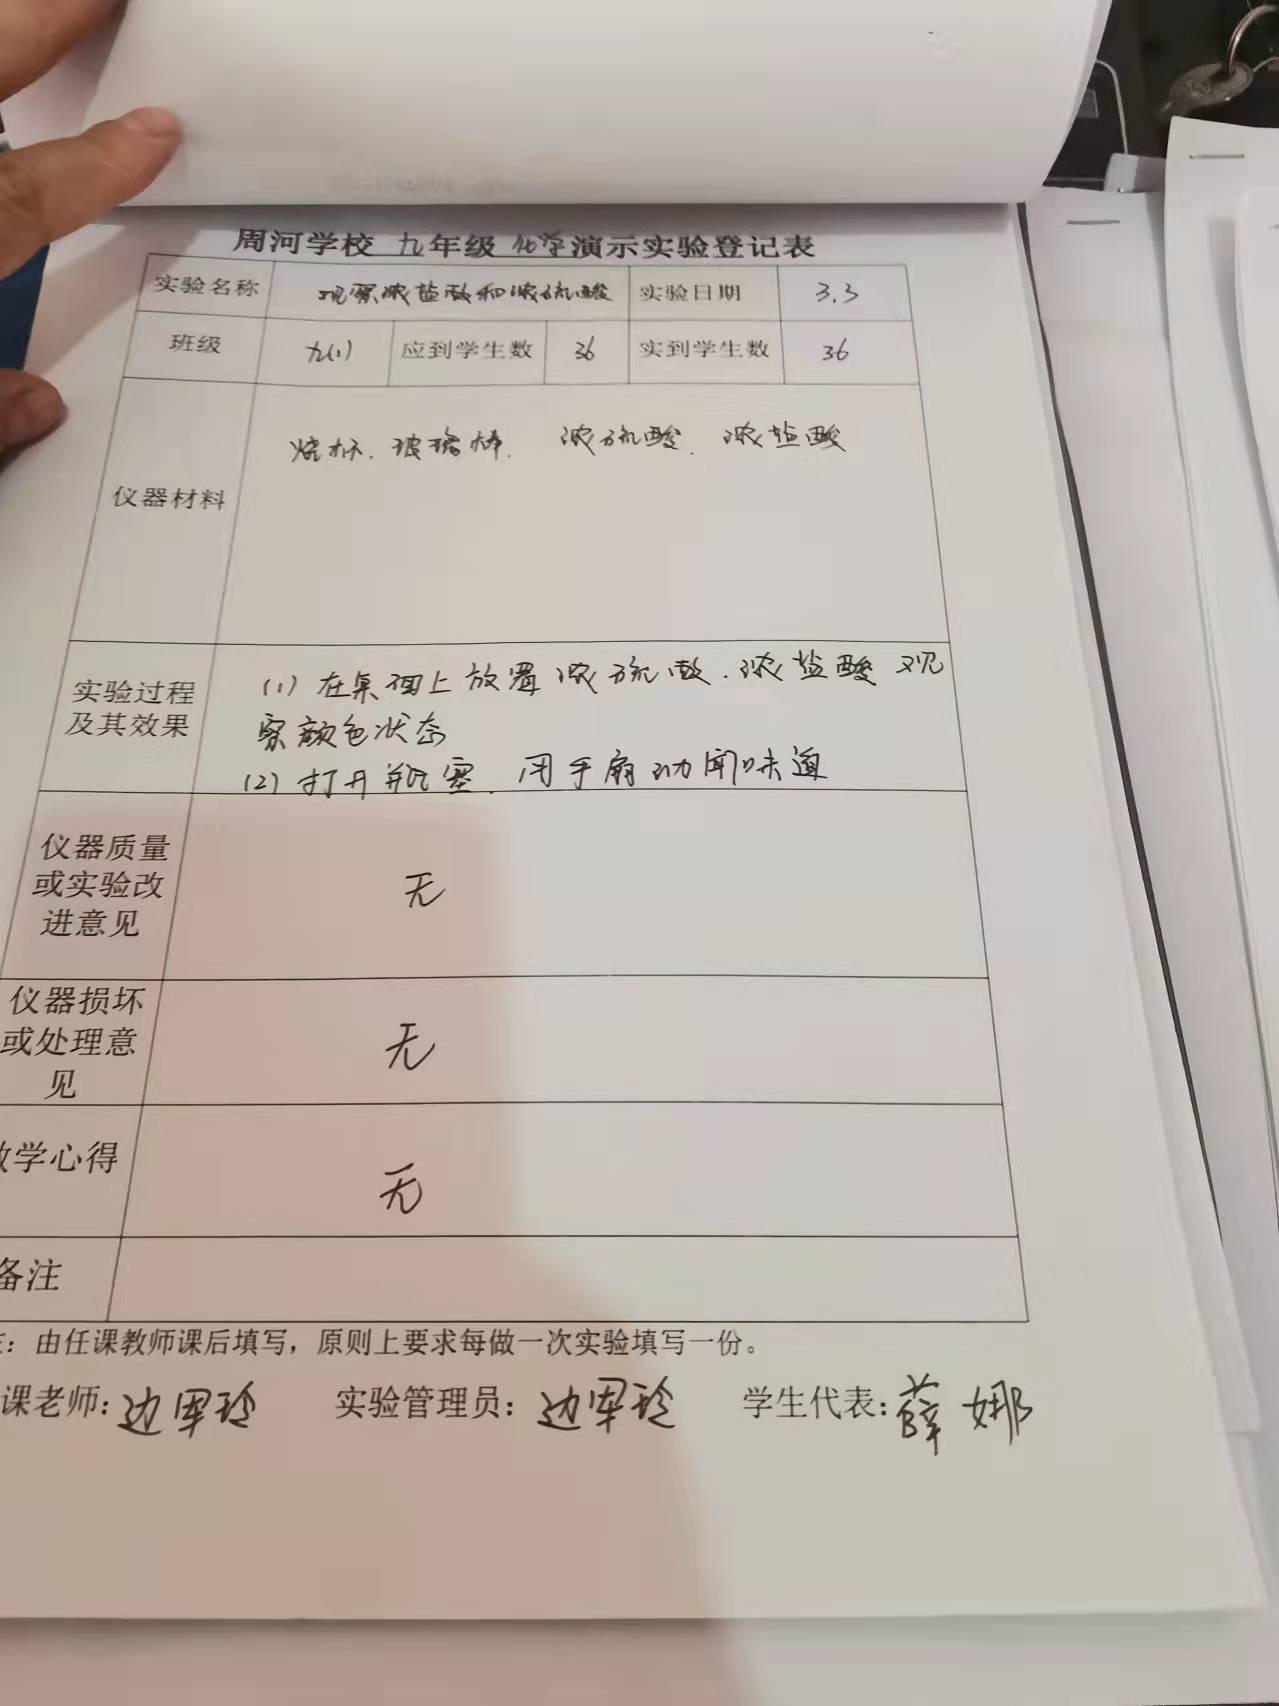 周河学校 九年级 化学演示实验登记表
实验名称 观察浓盐酸和浓硫酸 实验日期 3.3
班级 九(1) 应到学生数 36 实到学生数 36
仪器材料 烧杯. 玻璃棒. 浓硫酸. 浓盐酸
实验过程
及其效果
(1) 在桌面上放置浓硫酸.浓盐酸 观
察颜色状态
(2) 打开瓶塞. 用手扇动闻味道
仪器质量
或实验改
进意见
无
仪器损坏
或处理意
见
无
学心得
无
备注
：由任课教师课后填写，原则上要求每做一次实验填写一份。
课老师: 边军玲 实验管理员: 边军玲 学生代表: 薛娜